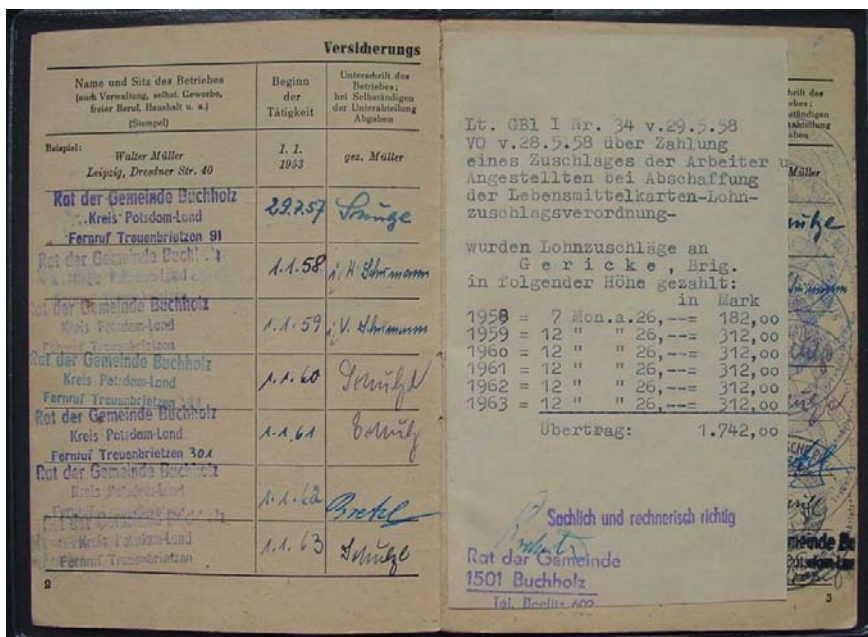 Versicherungs
Name und Sitz des Betriebes
(auch Verwaltung, selbst. Gewerbe,
freier Beruf, Haushalt u. a.)
(Stempel)
Beginn
der
Tätigkeit
Unterschrift des
Betriebes;
bei Selbständigen
der Unterabteilung
Abgaben
Beispiel:
Walter Müller
Leipzig, Dresdner Str. 40
1. 1.
1953
gez. Müller
Rat der Gemeinde Buchholz
Kreis Potsdam-Land
Fernruf Treuenbrietzen 91
29.7.57
Rat der Gemeinde Buchholz
1.1.58
i. V. Schumann
Rat der Gemeinde Buchholz
Kreis Potsdam-Land
Fernruf Treuenbrietzen
1.1.59
i. V. Schumann
Rat der Gemeinde Buchholz
Kreis Potsdam-Land
Fernruf Treuenbrietzen
1.1.60
Schulze
Rat der Gemeinde Buchholz
Kreis Potsdam-Land
Fernruf Treuenbrietzen 301
1.1.61
Rat der Gemeinde Buchholz
Kreis Potsdam-Land
1.1.62
Rat der Gemeinde Buchholz
Kreis Potsdam-Land
Fernruf Treuenbrietzen
1.1.63
Schulze
2
Lt. GBl I Nr. 34 v.29.5.58
VO v.28.5.58 über Zahlung
eines Zuschlages der Arbeiter u
Angestellten bei Abschaffung
der Lebensmittelkarten-Lohn-
zuschlagsverordnung-
wurden Lohnzuschläge an
G e r i c k e , Brig.
in folgender Höhe gezahlt:
in Mark
1958 = 7 Mon.a.26,--= 182,oo
1959 = 12 " " 26,--= 312,oo
196o = 12 " " 26,--= 312,oo
1961 = 12 " " 26,--= 312,oo
1962 = 12 " " 26,--= 312,oo
1963 = 12 " " 26,--= 312,oo
Übertrag: 1.742,oo
Sachlich und rechnerisch richtig
Rat der Gemeinde
1501 Buchholz
Tel. Beelitz 602
Müller
3